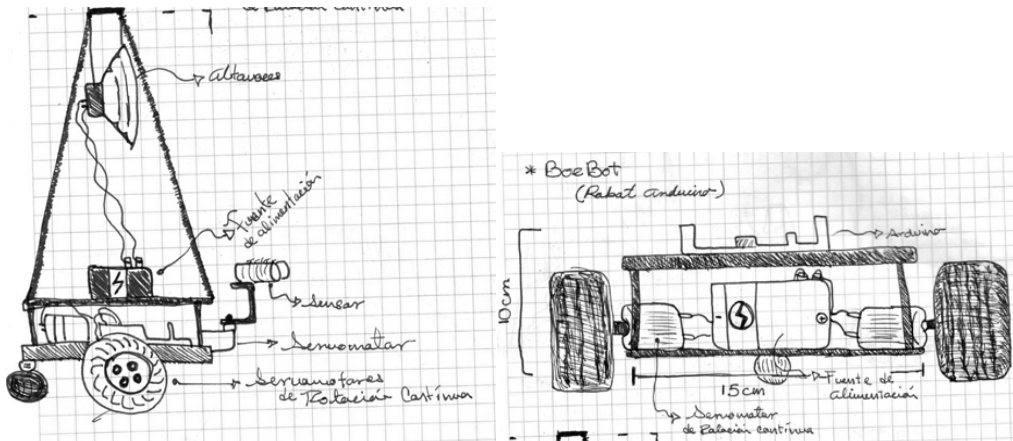 de Rotación Contínua
Altavoces
Fuente
de alimentación
Sensor
Servomotor
Servomotores
de Rotación Contínua
* BoeBot
(Robot Arduino)
Arduino
10cm
15cm
Fuente de
alimentación
Servomotor
de Rotación contínua